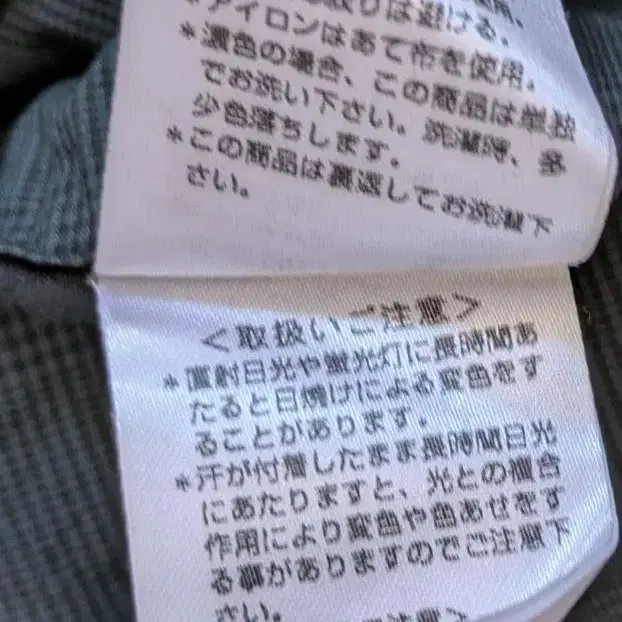 取りは避ける。
*アイロンはあて布を使用。
*濃色の場合、この商品は単独
でお洗い下さい。洗濯時、多
少色落ちします。
*この商品は裏返してお洗濯下
さい。
<取扱いご注意>
*直射日光や蛍光灯に長時間あ
たると日焼けによる変色をす
ることがあります。
*汗が付着したまま長時間日光
にあたりますと、光との複合
作用により変色や色あせをす
る事がありますのでご注意下
さい。
ご注意>